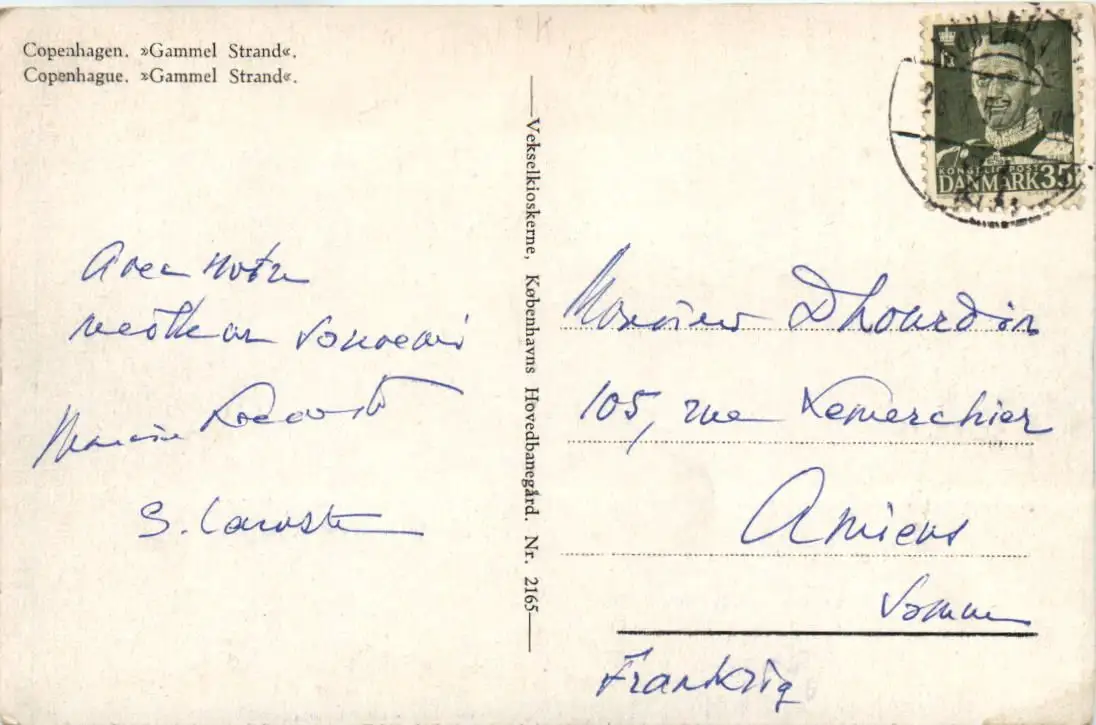 Copenhagen. »Gammel Strand«.
Copenhague. »Gammel Strand«.
Avec notre
meilleur souvenir
S. Lacoste
Vekselkioskerne, Københavns Hovedbanegård. Nr. 2165
KONGELIG POST
DANMARK 35
Monsieur Dhourdin
105, rue Lemerchier
Amiens
Somme
Frankrig